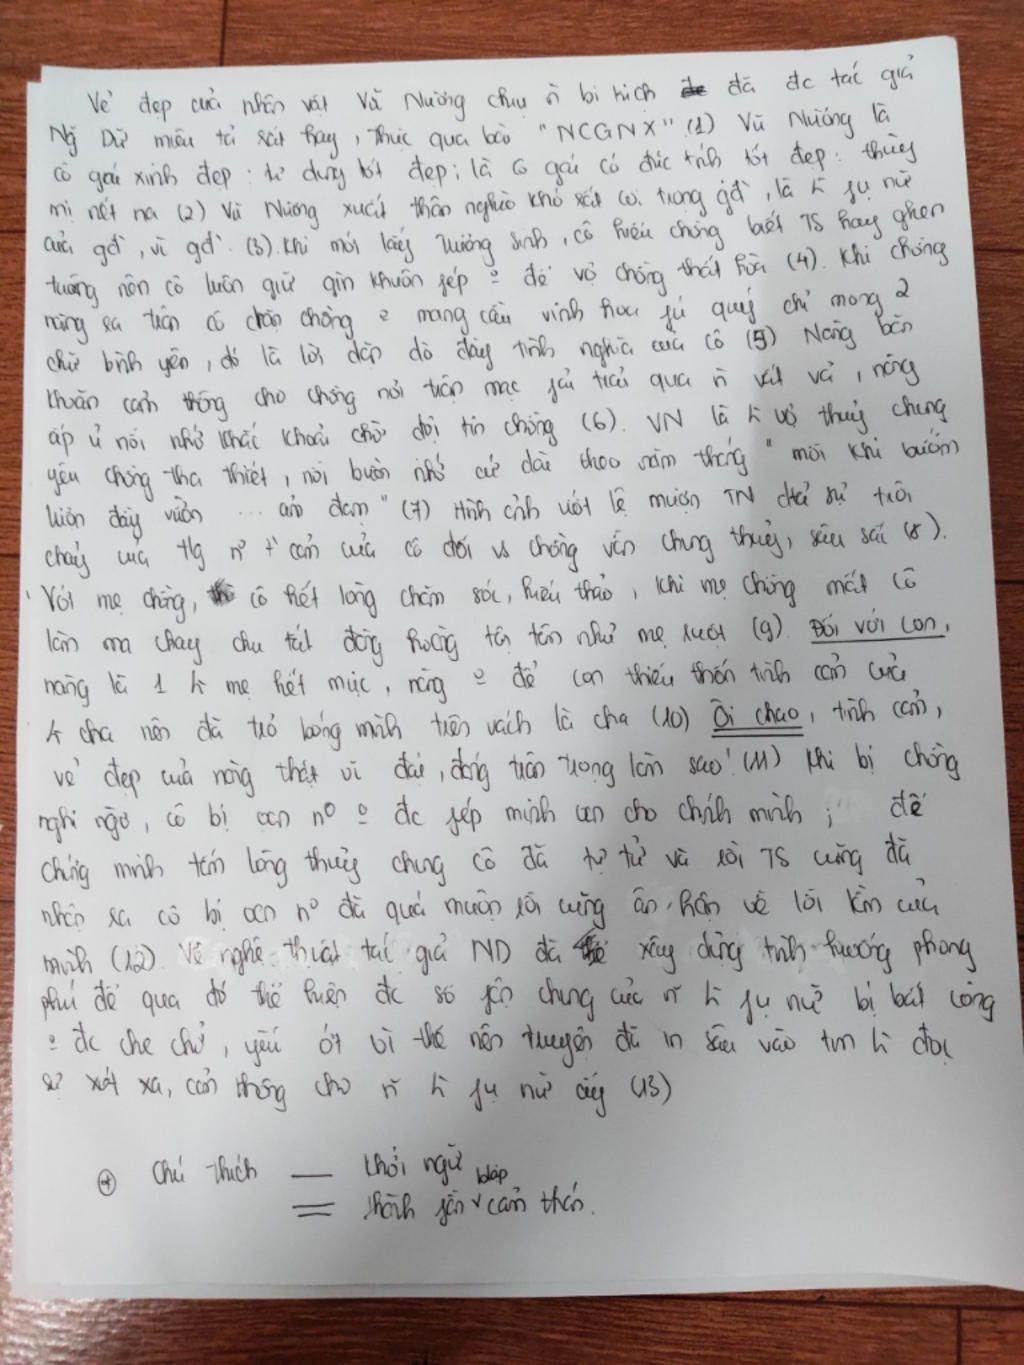 Vẻ đẹp của nhân vật Vũ Nương chịu ñ bi kịch đã đc tác giả
Ng Dữ miêu tả rất hay, thực qua bài "NCGNX" (1) Vũ Nương là
cô gái xinh đẹp: tư dung tốt đẹp; là cô gái có đức tính tốt đẹp: thùy
mị nết na (2) Vũ Nương xuất thân nghèo khó rất coi trọng gđ', là k fụ nữ
của gđ', vì gđ'. (3). Khi mới lấy Trương Sinh, cô hiểu chồng biết TS hay ghen
tuông nên cô luôn giữ gìn khuôn fép ≗ để vợ chồng thất hòa (4). Khi chồng
nàng ra trận cô chồng ≗ mang cầu vinh hoa fú quý chỉ mong 2
chữ bình yên, đó là lời dặn dò đầy tình nghĩa của cô (5) Nàng băn
khoăn cảm thông cho chồng nơi trận mạc fải trải qua ñ vất vả, nàng
ấp ủ nỗi nhớ khắc khoải chờ đợi tin chồng (6). VN là k vợ thuỷ chung
yêu chồng tha thiết, nỗi buồn nhớ cứ dài theo năm tháng "mỗi khi bướm
lượn đầy vườn ... ảm đạm" (7) Hình ảnh ước lệ mượn TN chỉ sự trôi
chảy của t/g nº t' cảm của cô đối vs chồng vẫn chung thuỷ, sâu sắc (8).
Với mẹ chồng, cô hết lòng chăm sóc, hiếu thảo, khi mẹ chồng mất cô
làm ma chay chu tất đàng hoàng tử tế như mẹ ruột (9). Đối với con,
nàng là 1 k mẹ hết mực, nàng ≗ để con thiếu thốn tình cảm của
k cha nên đã trỏ bóng mình trên vách là cha (10) Ôi chao, tình cảm,
vẻ đẹp của nàng thật vĩ đại, đáng trân trọng làm sao! (11) Khi bị chồng
nghi ngờ, cô bị oan nº ≗ đc fép minh oan cho chính mình; để
chứng minh tấm lòng thuỷ chung cô đã tự tử và rồi TS cũng đã
nhận ra cô bị oan nº đã quá muộn rồi cũng ân hận về lỗi lầm của
mình (12). Về nghệ thuật tác giả ND đã xây dựng tình huống phong
phú để qua đó thể hiện đc số fận chung của ñ k fụ nữ bị bất công
≗ đc che chở, yếu ớt vì thế nên truyện đã in sâu vào tim k đọc
sự xót xa, cảm thông cho ñ k fụ nữ ấy (13)
* Chú thích — khởi ngữ
= thành fần biệt lập cảm thán.